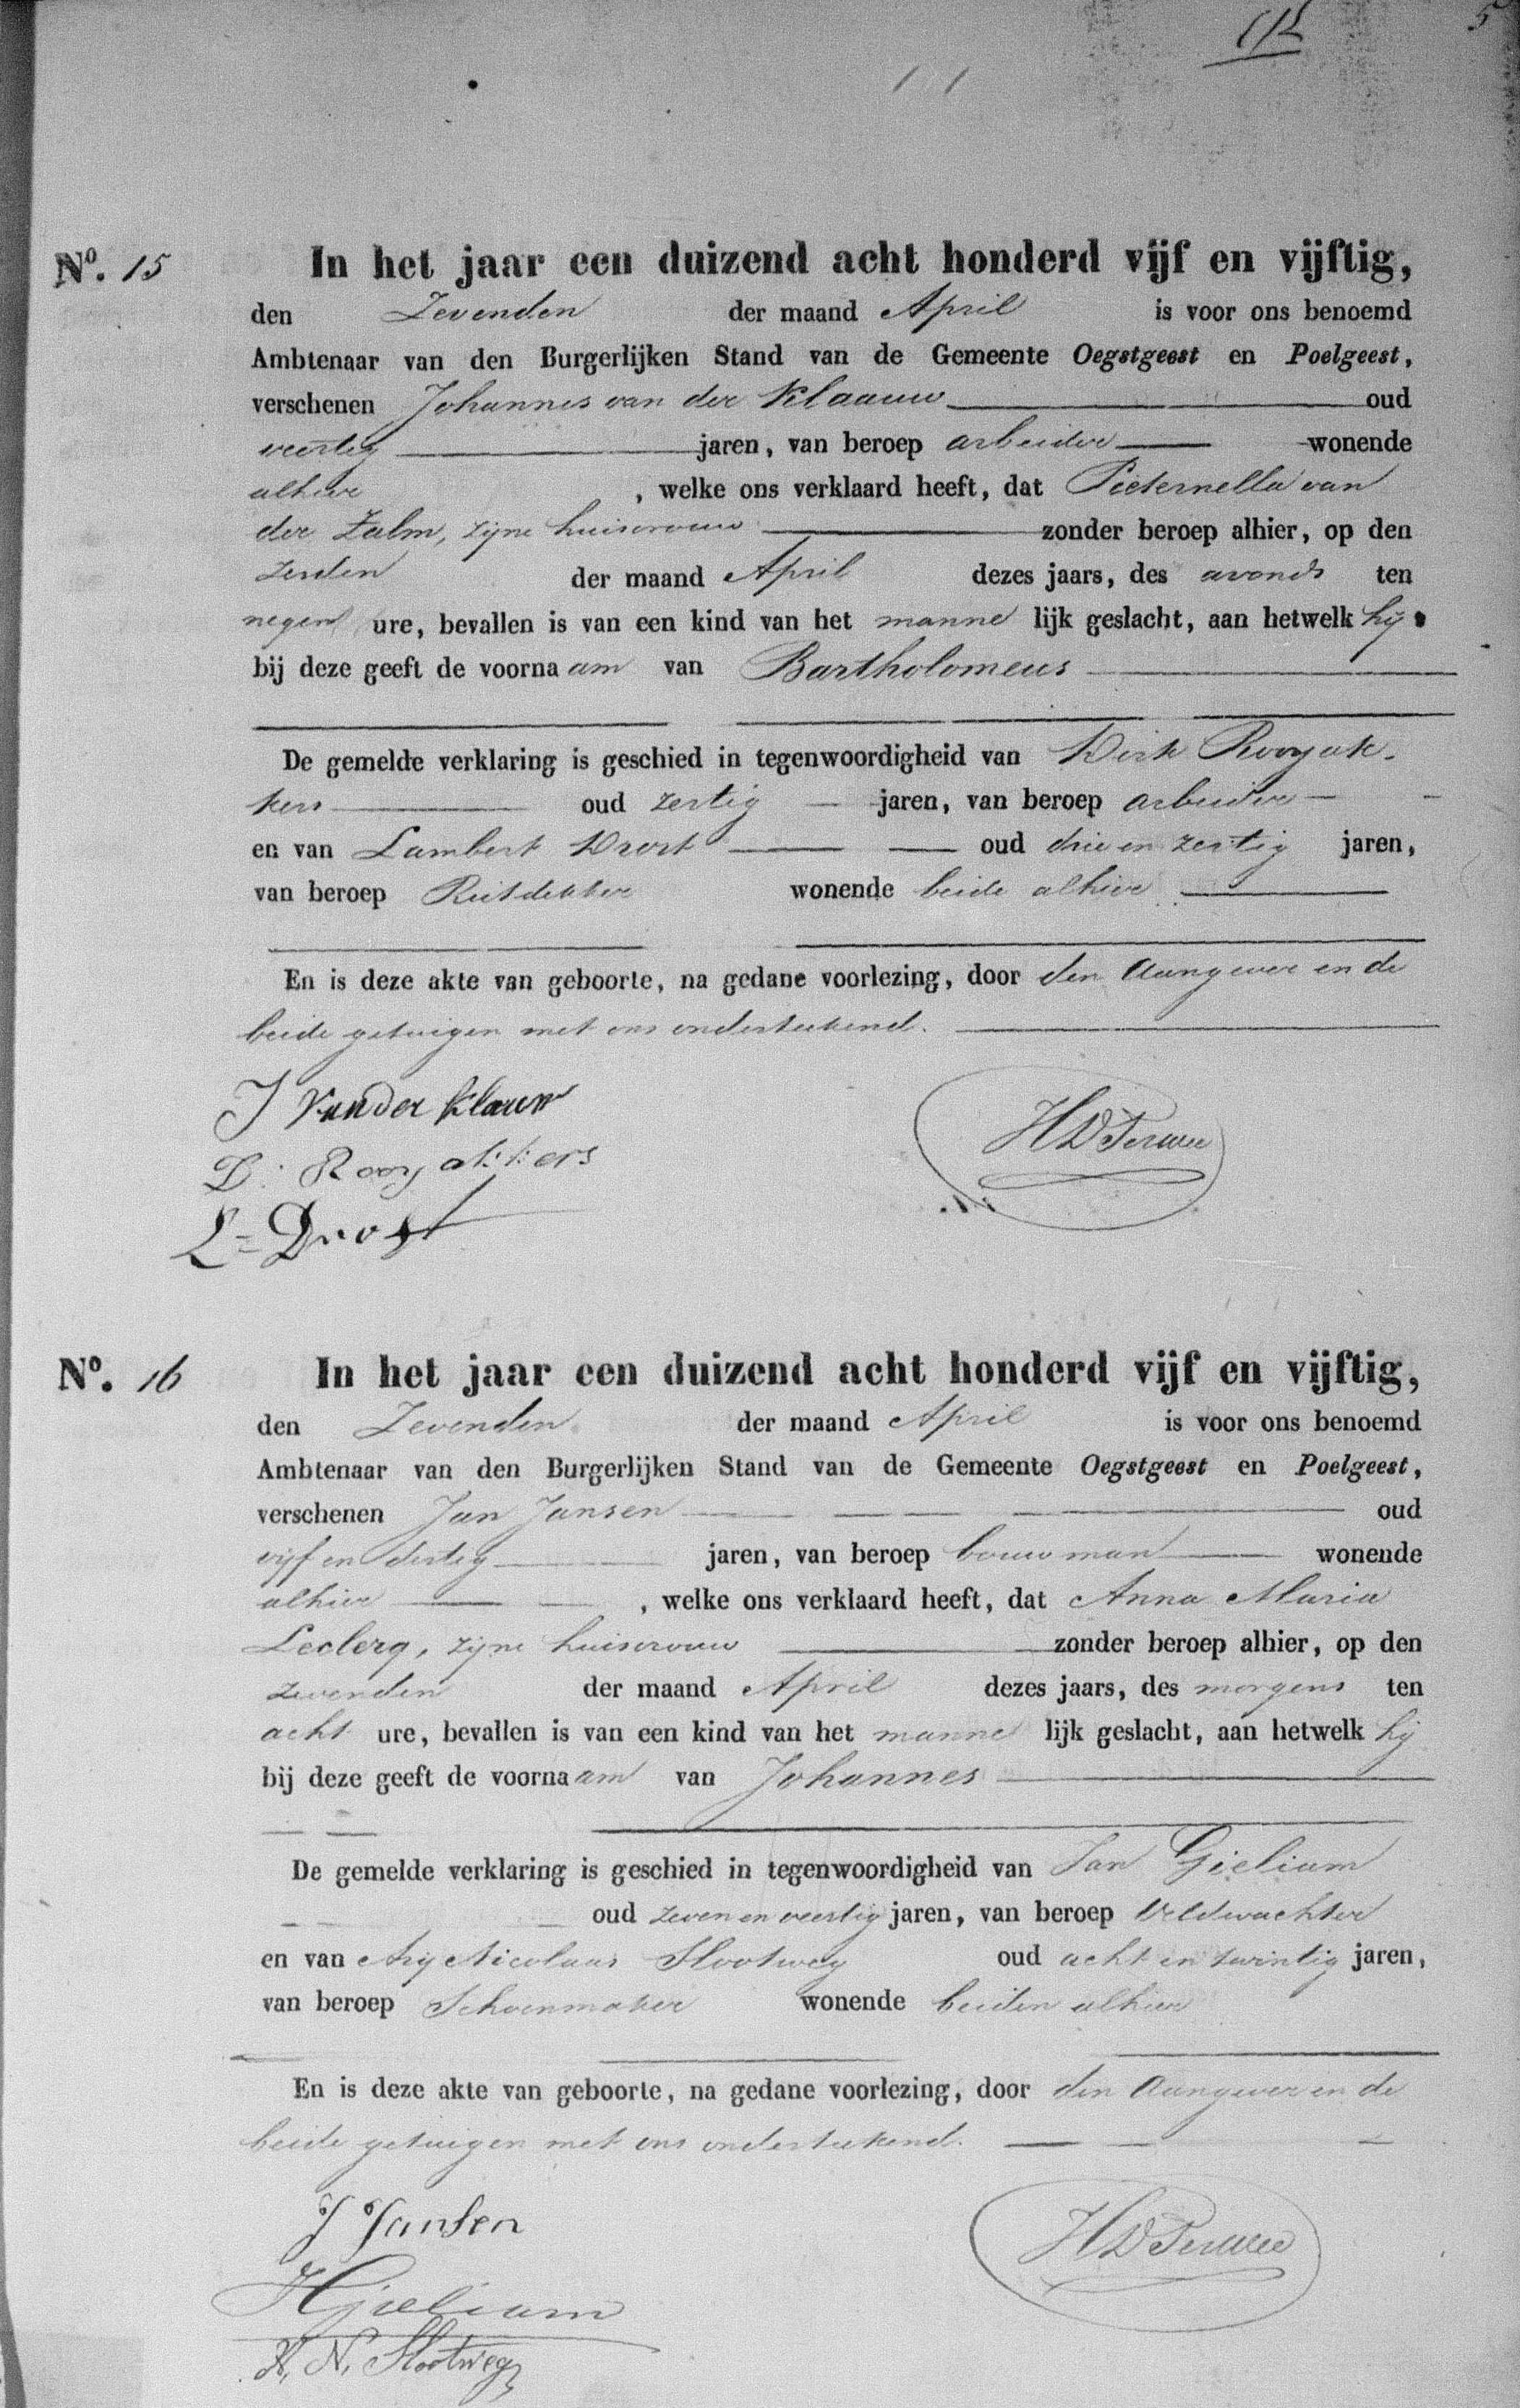 12
5
No. 15
In het jaar een duizend acht honderd vijf en vijftig,
den Zevenden der maand April is voor ons benoemd
Ambtenaar van den Burgerlijken Stand van de Gemeente Oegstgeest en Poelgeest,
verschenen Johannes van der Klaauw oud
veertig jaren, van beroep arbeider wonende
alhier , welke ons verklaard heeft, dat Pieternella van
der Zalm, zijne huisvrouw zonder beroep alhier, op den
zesden der maand April dezes jaars, des avonds ten
negen ure, bevallen is van een kind van het manne lijk geslacht, aan hetwelk hij
bij deze geeft de voorna am van Bartholomeus
De gemelde verklaring is geschied in tegenwoordigheid van Dirk Rooyak-
kers oud zestig jaren, van beroep arbeider
en van Lambert Drost oud drie en zestig jaren,
van beroep Rietdekker wonende beide alhier
En is deze akte van geboorte, na gedane voorlezing, door den Aangever en de
beide getuigen met ons onderteekend.
J van der Klauw
D: Rooyakkers
L= Drost
No. 16
In het jaar een duizend acht honderd vijf en vijftig,
den Zevenden der maand April is voor ons benoemd
Ambtenaar van den Burgerlijken Stand van de Gemeente Oegstgeest en Poelgeest,
verschenen Jan Jansen oud
vijf en dertig jaren, van beroep bouwman wonende
alhier , welke ons verklaard heeft, dat Anna Maria
Leclerq, zijne huisvrouw zonder beroep alhier, op den
zevenden der maand April dezes jaars, des morgens ten
acht ure, bevallen is van een kind van het manne lijk geslacht, aan hetwelk hij
bij deze geeft de voorna am van Johannes
De gemelde verklaring is geschied in tegenwoordigheid van Jan Gielium
oud zeven en veertig jaren, van beroep Veldwachter
en van Arij Nicolaas Slootweg oud acht en twintig jaren,
van beroep Schoenmaker wonende beiden alhier
En is deze akte van geboorte, na gedane voorlezing, door den Aangever en de
beide getuigen met ons onderteekend.
J Jansen
JGielium
A. N. Slootweg